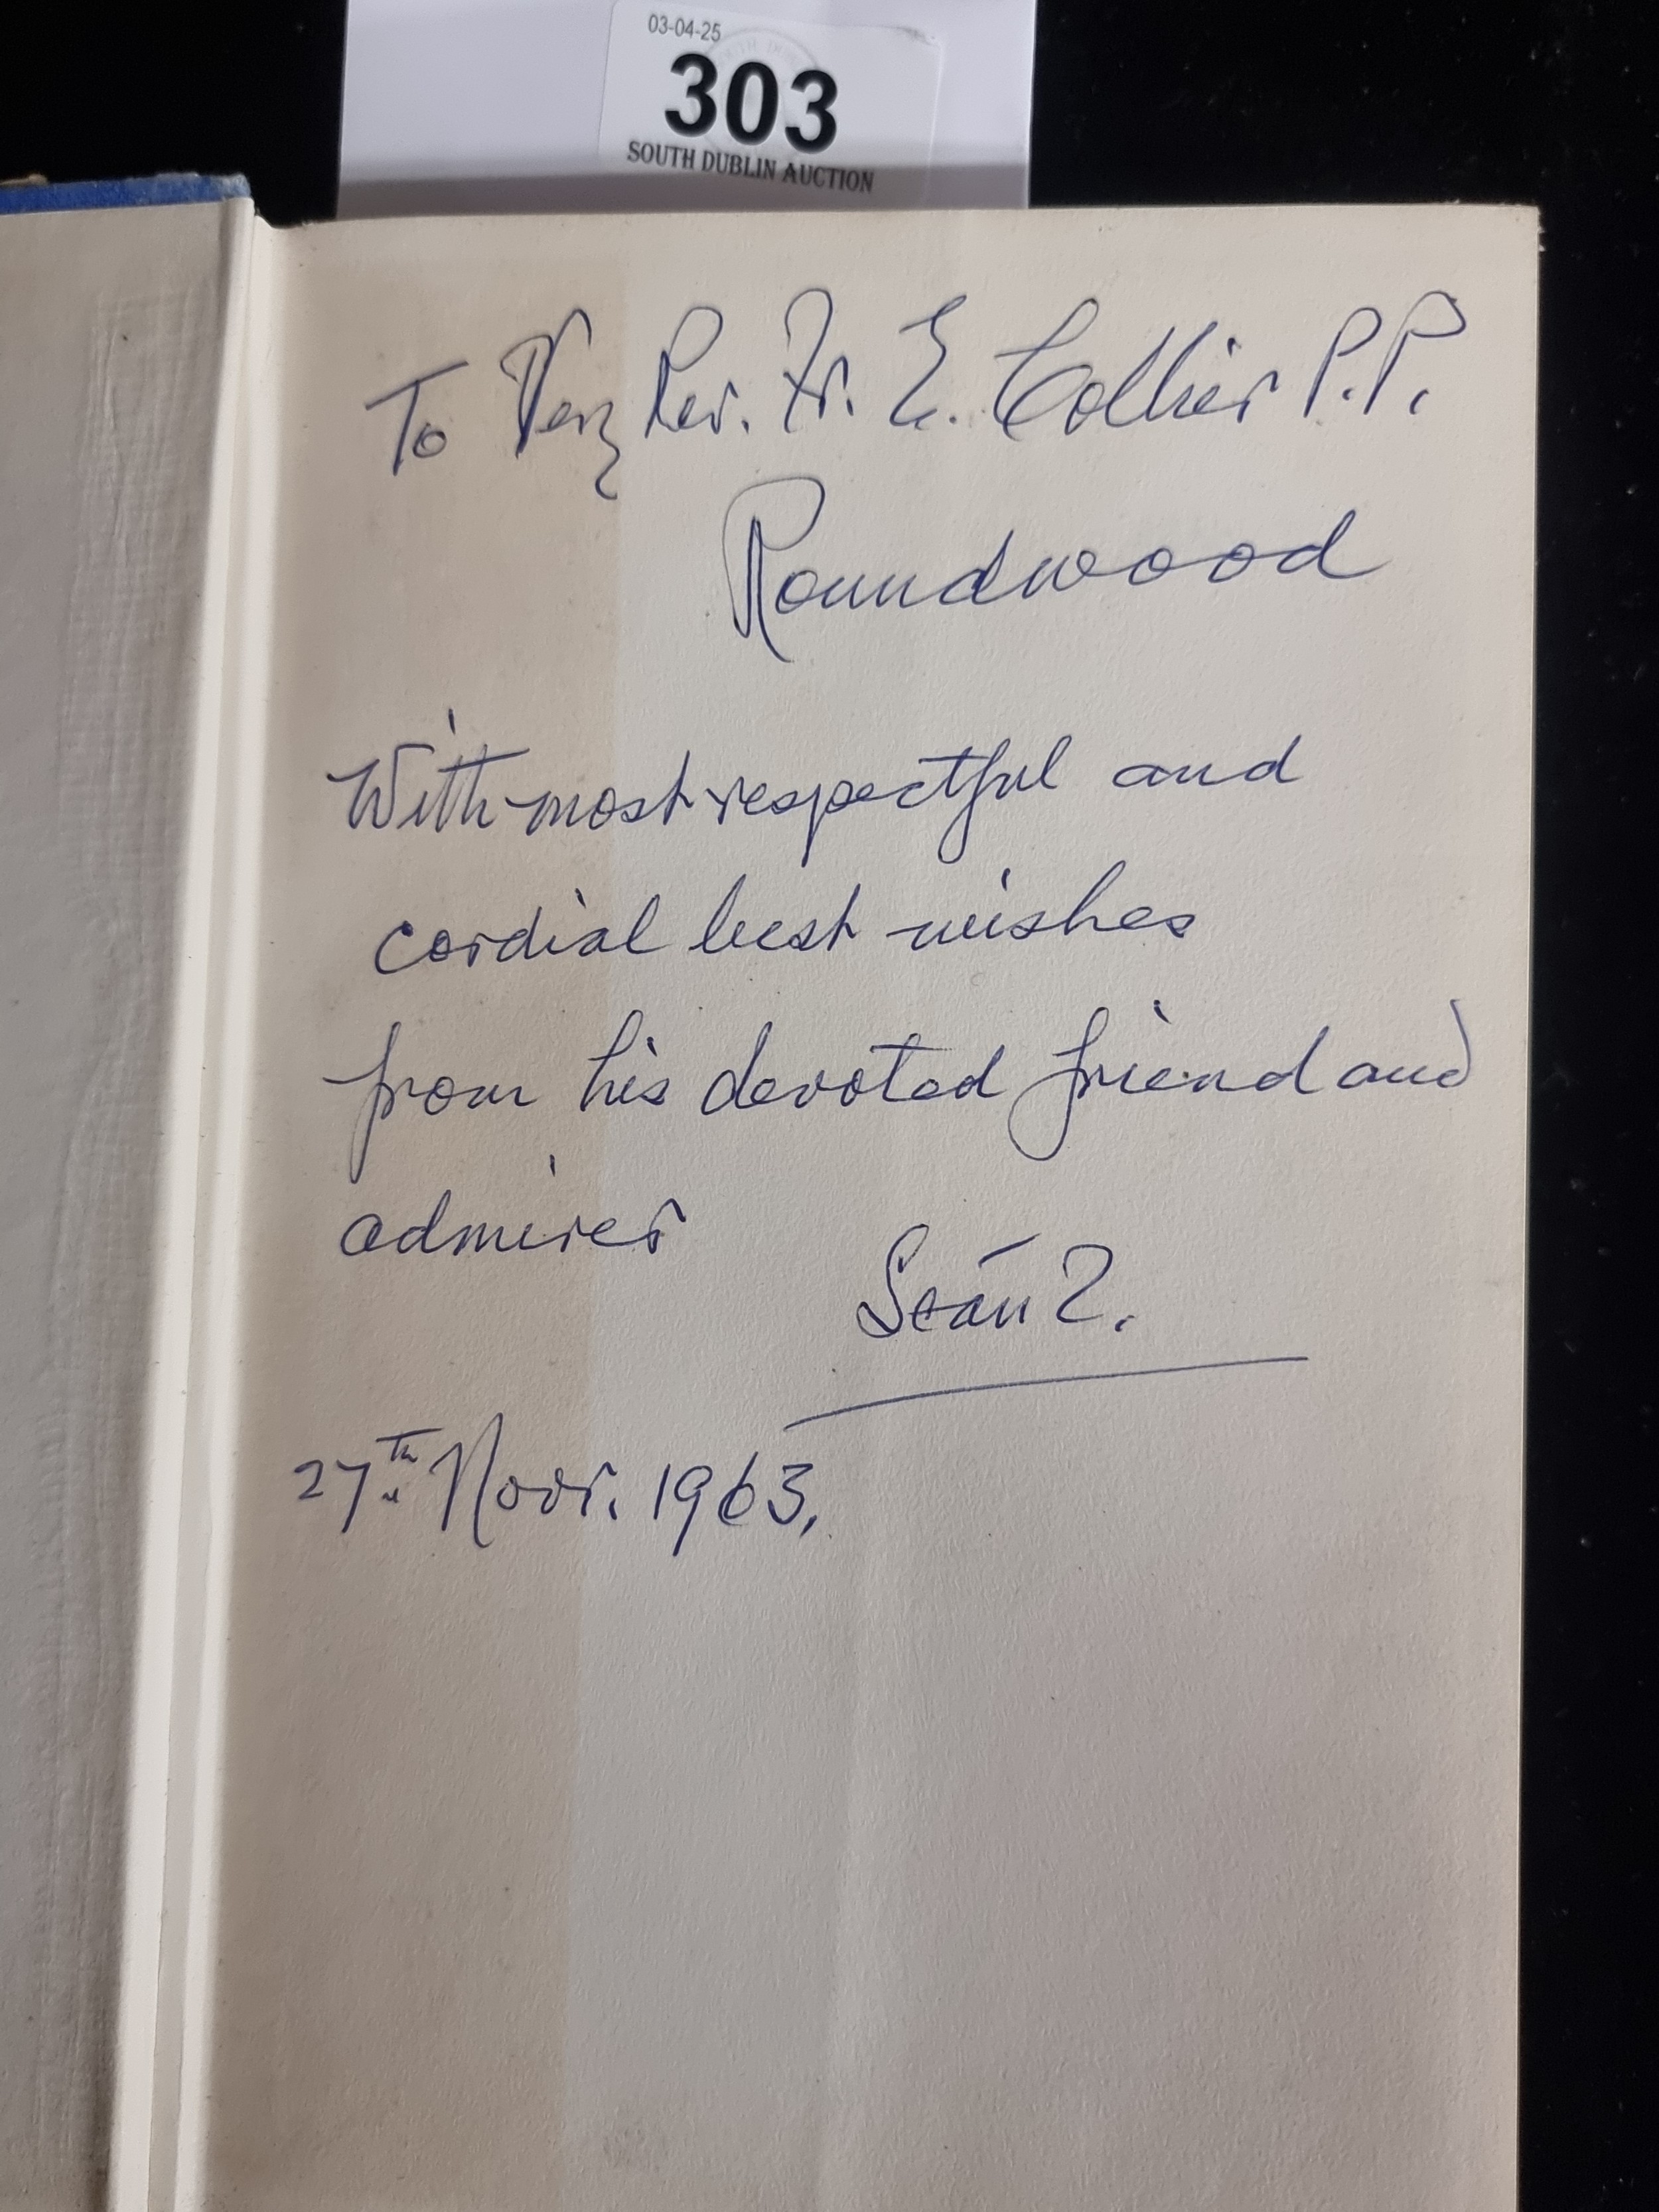 03-04-25
303
SOUTH DUBLIN AUCTION
To Very Rev. Fr. E. Collier P.P.
Roundwood
With most respectful and
cordial best wishes
from his devoted friend and
admirer
Seán
27th Novr. 1963.